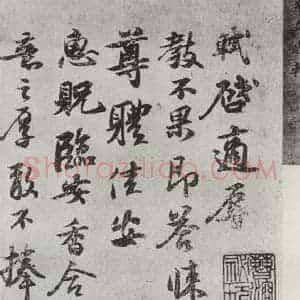 軾啓適辱
教不果即答悚
尊體佳安
惠貺臨安香合
意之厚敢不捧
Shufaziliao.com